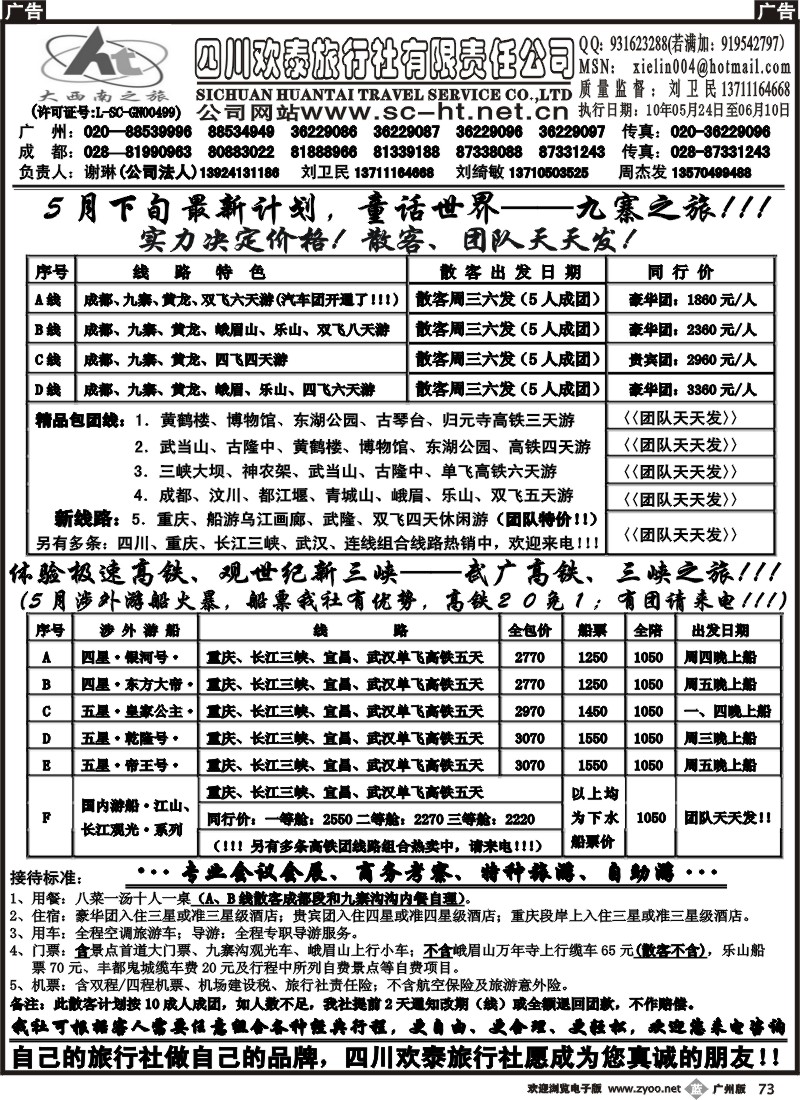 广告
广告
ht
大西南之旅
(许可证号:L-SC-GN00499)
四川欢泰旅行社有限责任公司
SICHUAN HUANTAI TRAVEL SERVICE CO.,LTD
公司网站www.sc-ht.net.cn
QQ: 931623288(若满加: 919542797)
MSN: xielin004@hotmail.com
质量监督: 刘卫民13711164668
执行日期: 10年05月24日至06月10日
广 州: 020—88539996 88534949 36229086 36229087 36229096 36229097 传真: 020-36229096
成 都: 028—81990963 80883022 81888966 81339188 87338088 87331243 传真: 028-87331243
负责人: 谢琳(公司法人)13924131186 刘卫民 13711164668 刘绮敏 13710503525 周杰发 13570499488
5月下旬最新计划，童话世界——九寨之旅!!!
实力决定价格! 散客、团队天天发!
序号 线路特色 散客出发日期 同行价
A线 成都、九寨、黄龙、双飞六天游(汽车团开通了!!!) 散客周三六发(5人成团) 豪华团: 1860元/人
B线 成都、九寨、黄龙、峨眉山、乐山、双飞八天游 散客周三六发(5人成团) 豪华团: 2360元/人
C线 成都、九寨、黄龙、四飞四天游 散客周三六发(5人成团) 贵宾团: 2960元/人
D线 成都、九寨、黄龙、峨眉、乐山、四飞六天游 散客周三六发(5人成团) 豪华团: 3360元/人
精品包团线: 1. 黄鹤楼、博物馆、东湖公园、古琴台、归元寺高铁三天游 〈〈团队天天发〉〉
2. 武当山、古隆中、黄鹤楼、博物馆、东湖公园、高铁四天游 〈〈团队天天发〉〉
3. 三峡大坝、神农架、武当山、古隆中、单飞高铁六天游 〈〈团队天天发〉〉
4. 成都、汶川、都江堰、青城山、峨眉、乐山、双飞五天游 〈〈团队天天发〉〉
新线路: 5. 重庆、船游乌江画廊、武隆、双飞四天休闲游(团队特价!!)
另有多条: 四川、重庆、长江三峡、武汉、连线组合线路热销中，欢迎来电!!! 〈〈团队天天发〉〉
体验极速高铁、观世纪新三峡——武广高铁、三峡之旅!!!
(5月涉外游船火暴，船票我社有优势，高铁20免1; 有团请来电!!!)
序号 涉外游船 线路 全包价 船票 全陪 出发日期
A 四星·银河号· 重庆、长江三峡、宜昌、武汉单飞高铁五天 2770 1250 1050 周四晚上船
B 四星·东方大帝· 重庆、长江三峡、宜昌、武汉单飞高铁五天 2770 1250 1050 周五晚上船
C 五星·皇家公主· 重庆、长江三峡、宜昌、武汉单飞高铁五天 2970 1450 1050 一、四晚上船
D 五星·乾隆号· 重庆、长江三峡、宜昌、武汉单飞高铁五天 3070 1550 1050 周三晚上船
E 五星·帝王号· 重庆、长江三峡、宜昌、武汉单飞高铁五天 3070 1550 1050 周五晚上船
F 国内游船·江山、长江观光·系列 重庆、长江三峡、宜昌、武汉单飞高铁五天 以上均为下水船票价 1050 团队天天发!!
同行价: 一等舱: 2550 二等舱: 2270 三等舱: 2220
(!!! 另有多条高铁团线路组合热卖中，请来电!!!)
接待标准:
···专业会议会展、商务考察、特种旅游、自助游···
1、用餐: 八菜一汤十人一桌(A、B线散客成都段和九寨沟沟内餐自理)。
2、住宿: 豪华团入住三星或准三星级酒店; 贵宾团入住四星或准四星级酒店; 重庆段岸上入住三星或准三星级酒店。
3、用车: 全程空调旅游车; 导游: 全程专职导游服务。
4、门票: 含景点首道大门票、九寨沟观光车、峨眉山上行小车; 不含峨眉山万年寺上行缆车65元(散客不含)，乐山船
票70元、丰都鬼城缆车费20元及行程中所列自费景点等自费项目。
5、机票: 含双程/四程机票、机场建设税、旅行社责任险; 不含航空保险及旅游意外险。
备注: 此散客计划按10成人成团，如人数不足，我社提前2天通知改期(线)或全额退回团款，不作赔偿。
我社可根据客人需要任意组合各种经典行程，更自由、更合理、更轻松，欢迎您来电咨询
自己的旅行社做自己的品牌，四川欢泰旅行社愿成为您真诚的朋友!!
欢迎浏览电子版 www.zyoo.net 蓝 广州版 73